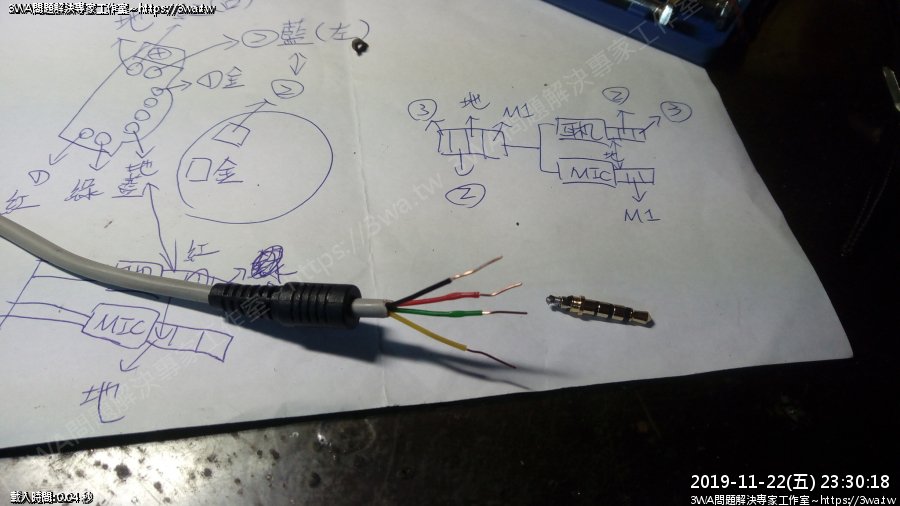 3WA問題解決專家工作室~https://3wa.tw
地
② 藍(左)
①金
②
金
紅
綠
藍
地
紅
MIC
地
③ 地 M1
②
耳机
② ③
地
MIC
M1
3WA問題解決專家工作室~https://3wa.tw
載入時間:0.04 秒
2019-11-22(五) 23:30:18
3WA問題解決專家工作室~https://3wa.tw